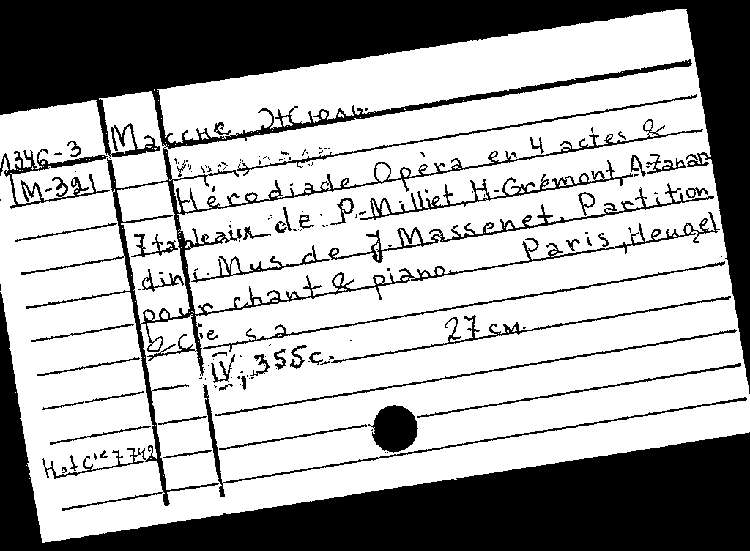 1346-3 Массне, Жюль.
M-321 Иродиада
Hérodiade Opéra en 4 actes &
7 tableaux de P. Milliet, H. Grémont, A. Zanar-
dini. Mus de J. Massenet. Partition
pour chant & piano. Paris, Heugel
& Cie, s. a.
IV, 355 с. 27 см.
H et Cie 7742